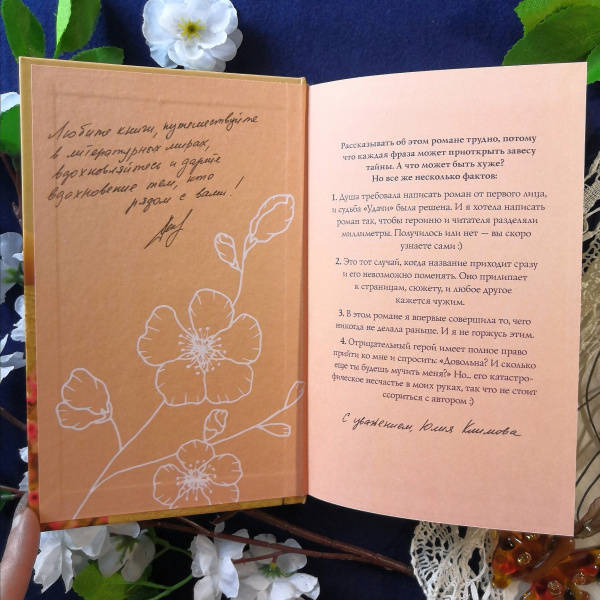 Любите книги, путешествуйте
в литературных мирах,
вдохновляйтесь и дарите
вдохновение тем, кто
рядом с вами!
Рассказывать об этом романе трудно, потому
что каждая фраза может приоткрыть завесу
тайны. А что может быть хуже?
Но все же несколько фактов:
1. Душа требовала написать роман от первого лица,
и судьба «Удачи» была решена. И я хотела написать
роман так, чтобы героиню и читателя разделяли
миллиметры. Получилось или нет — вы скоро
узнаете сами :)
2. Это тот случай, когда название приходит сразу
и его невозможно поменять. Оно прилипает
к страницам, сюжету, и любое другое
кажется чужим.
3. В этом романе я впервые совершила то, чего
никогда не делала раньше. И я не горжусь этим.
4. Отрицательный герой имеет полное право
прийти ко мне и спросить: «Довольна? И сколько
еще ты будешь мучить меня?» Но.. его катастро-
фическое несчастье в моих руках, так что не стоит
ссориться с автором :)
С уважением, Юлия Климова